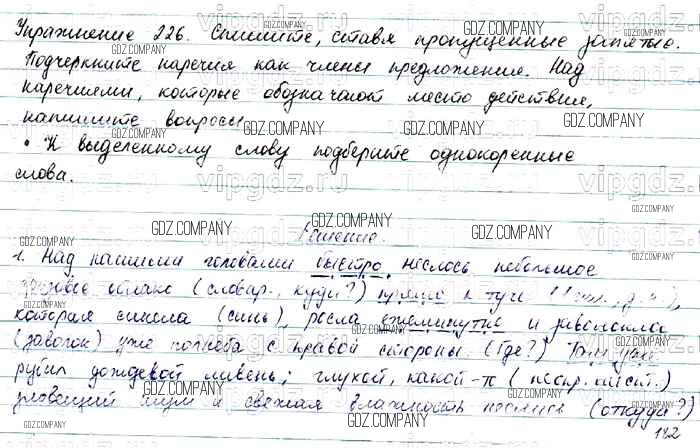 Упражнение 226. Спишите, ставя пропущенные запятые.
Подчеркните наречия как члены предложения. Над
наречиями, которые обозначают место действия,
напишите вопросы.
• К выделенному слову подберите однокоренные
слова.
Решение.
1. Над нашими головами быстро неслось небольшое
облако (словар., куда?) прямо к туче
которая синела (синь), росла ежеминутно и заволокла
(заволок) уже полнеба с правой стороны. (где?) Там уже
рубил дождевой ливень; глухой, какой-то
зловещий шум и свежая влажность неслись (откуда?)
142
GDZ.COMPANY
vipgdz.ru